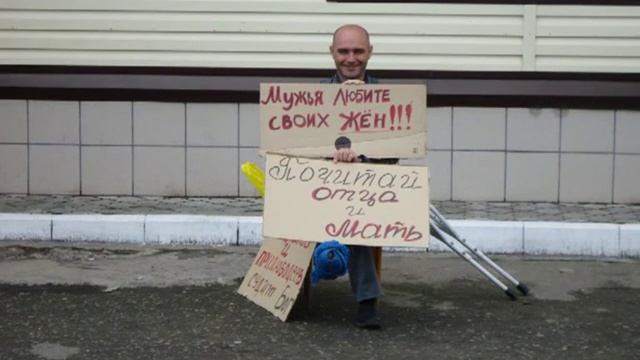 Мужья Любите
своих жён!!!
Почитай
отца
и
мать
и
судит Бог